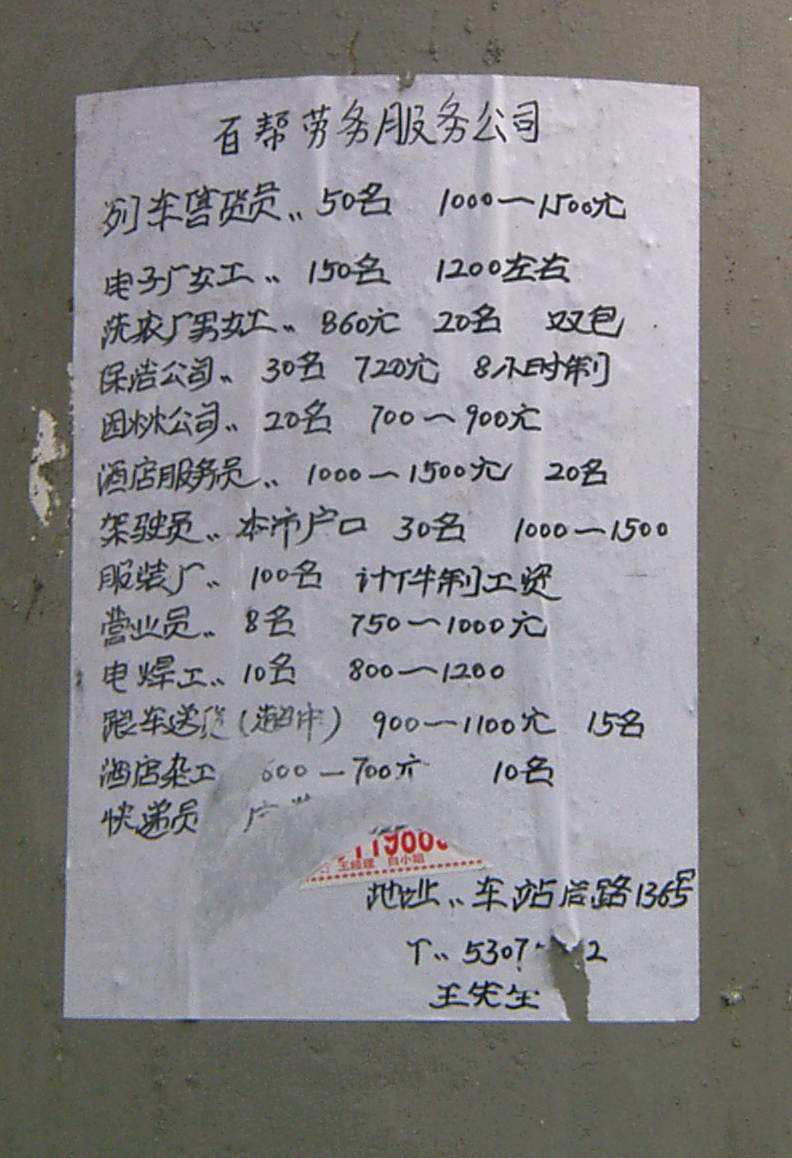 百帮劳务服务公司
列车售货员.. 50名 1000—1500元
电子厂女工.. 150名 1200左右
洗衣厂男女工.. 860元 20名 双包
保洁公司.. 30名 720元 8小时制
公司.. 20名 700—900元
酒店服务员.. 1000—1500元 20名
驾驶员.. 本市户口 30名 1000—1500
服装厂.. 100名 计件制工资
营业员.. 8名 750—1000元
电焊工.. 10名 800—1200
跟车送货(超市) 900—1100元 15名
酒店杂工 600—700元 10名
快递员
王经理 白小姐
地址.. 车站后路136号
T.. 5307 2
王先生